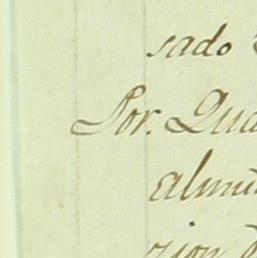 sado
Por. Qua
almu
zion